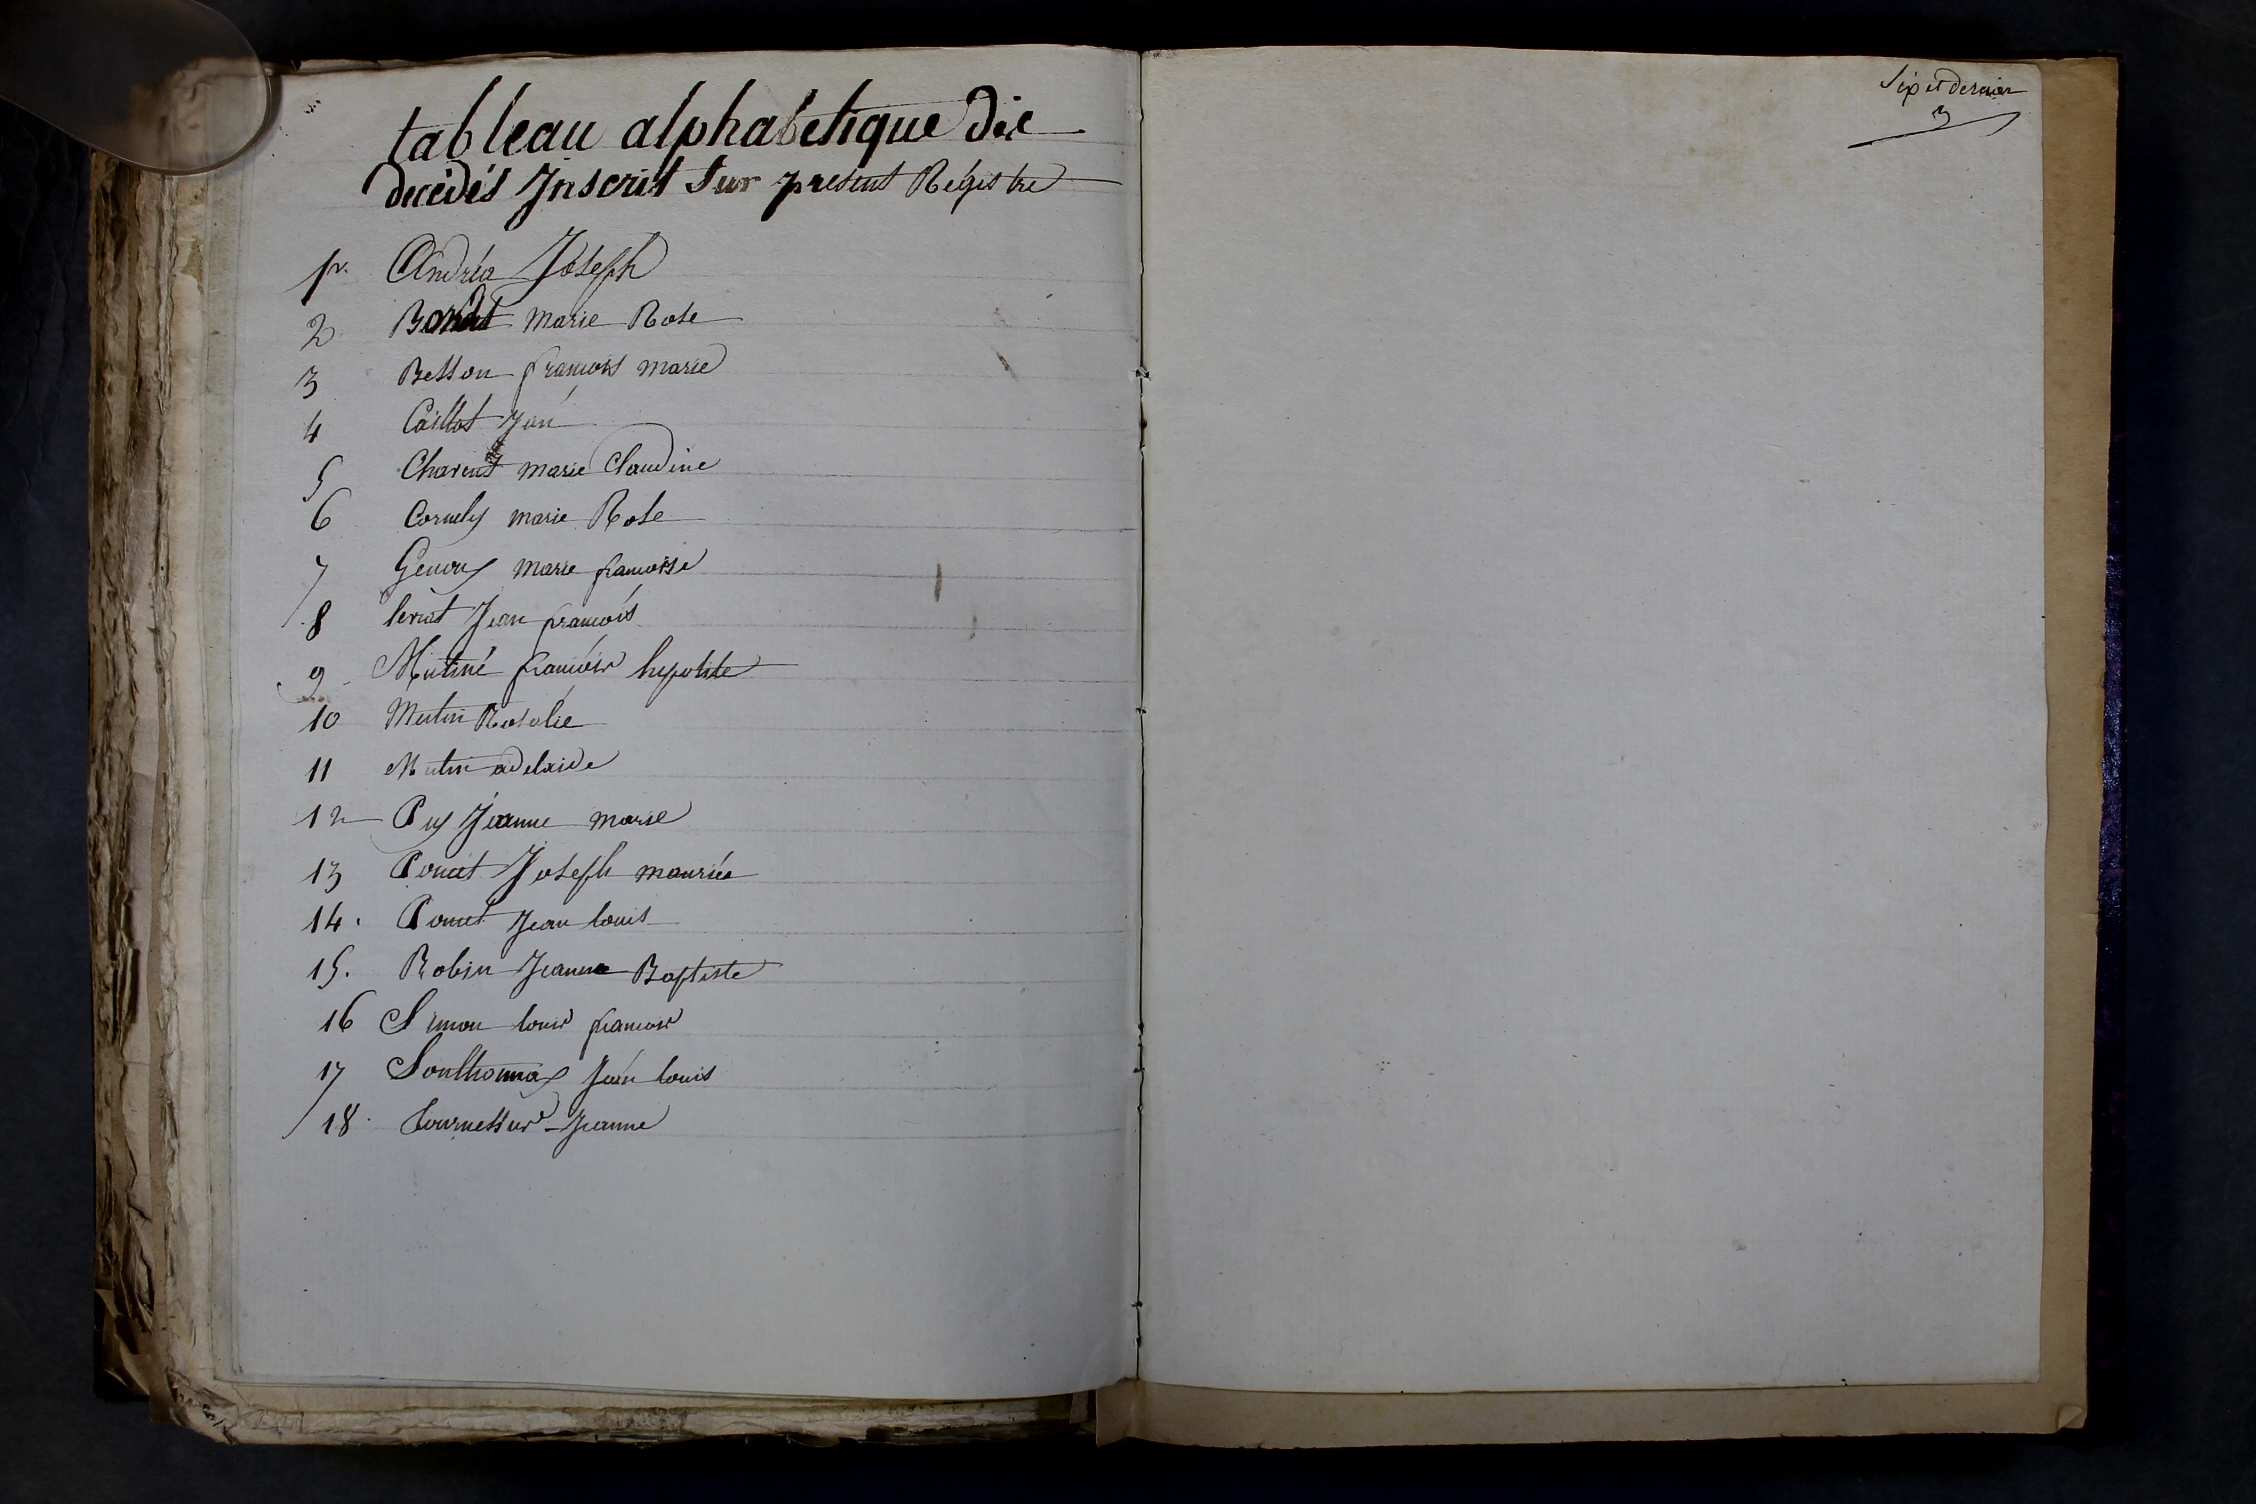 tableau alphabetique des
decédés Inscrit Sur present Régistre
1er Andréa Joseph
2 Bondet Marie Rose
3 Besson francois marie
4 Caillot Jean
5 Charent marie Claudine
6 Cornely marie Rose
7 Genoux marie francoise
8 leriat Jean francois
9 Mutiné francois hypolite
10 Mutin Rosalie
11 Mutin adelaide
12 Puy Jeanne marie
13 Poncet Joseph maurice
14. Poncet Jean louis
15. Robin Jeanne Baptiste
16 Simon louis francois
17 Sonthonnax Jean louis
18. Jeanne
Six et dernier